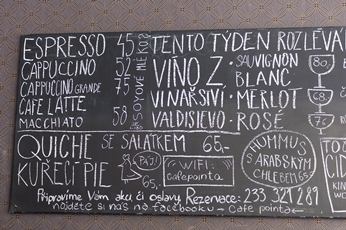 ESPRESSO 45
CAPPUCCINO 52
CAPPUCCINO GRANDE 75
CAFE LATTE
MACCHIATO 58
SOYOVÉ MLÉKO
TENTO TÝDEN ROZLÉVÁ
VÍNO Z
VINAŘSTVÍ
VALDISIEVO
SAUVIGNON
BLANC
MERLOT
ROSÉ
80,-
QUICHE SE SALÁTKEM 65,-
KUŘECÍ PIE
65,-
WIFI:
cafepointa
HUMMUS
S ARABSKÝM
CHLEBEM 65,-
Připravíme Vám akci či oslavu, Rezervace: 233 321 289
najdete si nás na facebooku - Cafe pointa